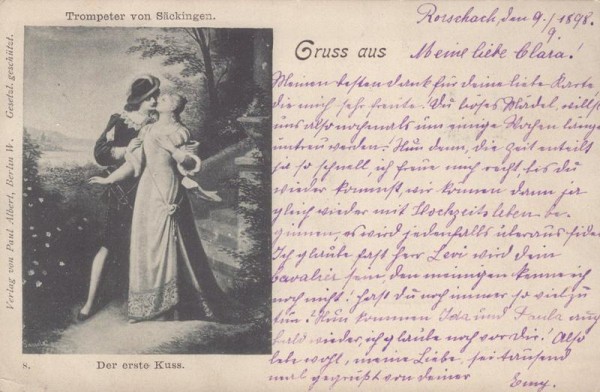 Trompeter von Säckingen.
Verlag von Paul Albert, Berlin W. Gesetzl. geschützt.
8. Der erste Kuss.
Gruss aus
Rorschach, den 9./9. 1898.
Meine liebe Clara!
Meinen besten dank für deine liebe Karte
die mich sehr freute. Du böses Mädel, willst
uns also nochmals um einige Wochen länger
untreu werden. Nun denn, die Zeit enteilt
ja so schnell, ich freue mich recht bis du
wieder kommst, wir können dann ja
gleich wieder mit Hochzeitsleben be-
ginnen, es wird jedenfalls überaus
Ich glaube fast herr Levi wird dein
cavalier sein, den meinigen kenne ich
noch nicht! hast du noch immer so viel zu
tun? Nun kommen Ida und Paula auch
bald wieder, ich glaube noch vor dir! Also
lebe wohl, meine Liebe, sei tausend
mal gegrüßt von deiner
Emy.